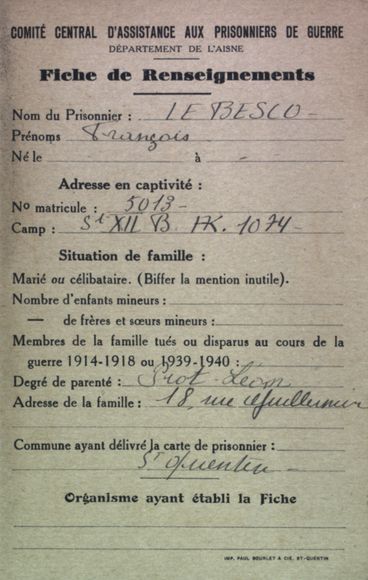 COMITÉ CENTRAL D'ASSISTANCE AUX PRISONNIERS DE GUERRE
DÉPARTEMENT DE L'AISNE
Fiche de Renseignements
Nom du Prisonnier : LE BESCO
Prénoms François
Né le à -
Adresse en captivité :
No matricule : 5013 -
Camp : St XII B. AK. 1074 -
Situation de famille :
Marié ou célibataire. (Biffer la mention inutile).
Nombre d'enfants mineurs :
— de frères et sœurs mineurs :
Membres de la famille tués ou disparus au cours de la
guerre 1914-1918 ou 1939-1940 :
Degré de parenté :
Adresse de la famille : 18, rue
Commune ayant délivré la carte de prisonnier :
St Quentin -
Organisme ayant établi la Fiche
IMP. PAUL BOURLET & CIE, ST-QUENTIN